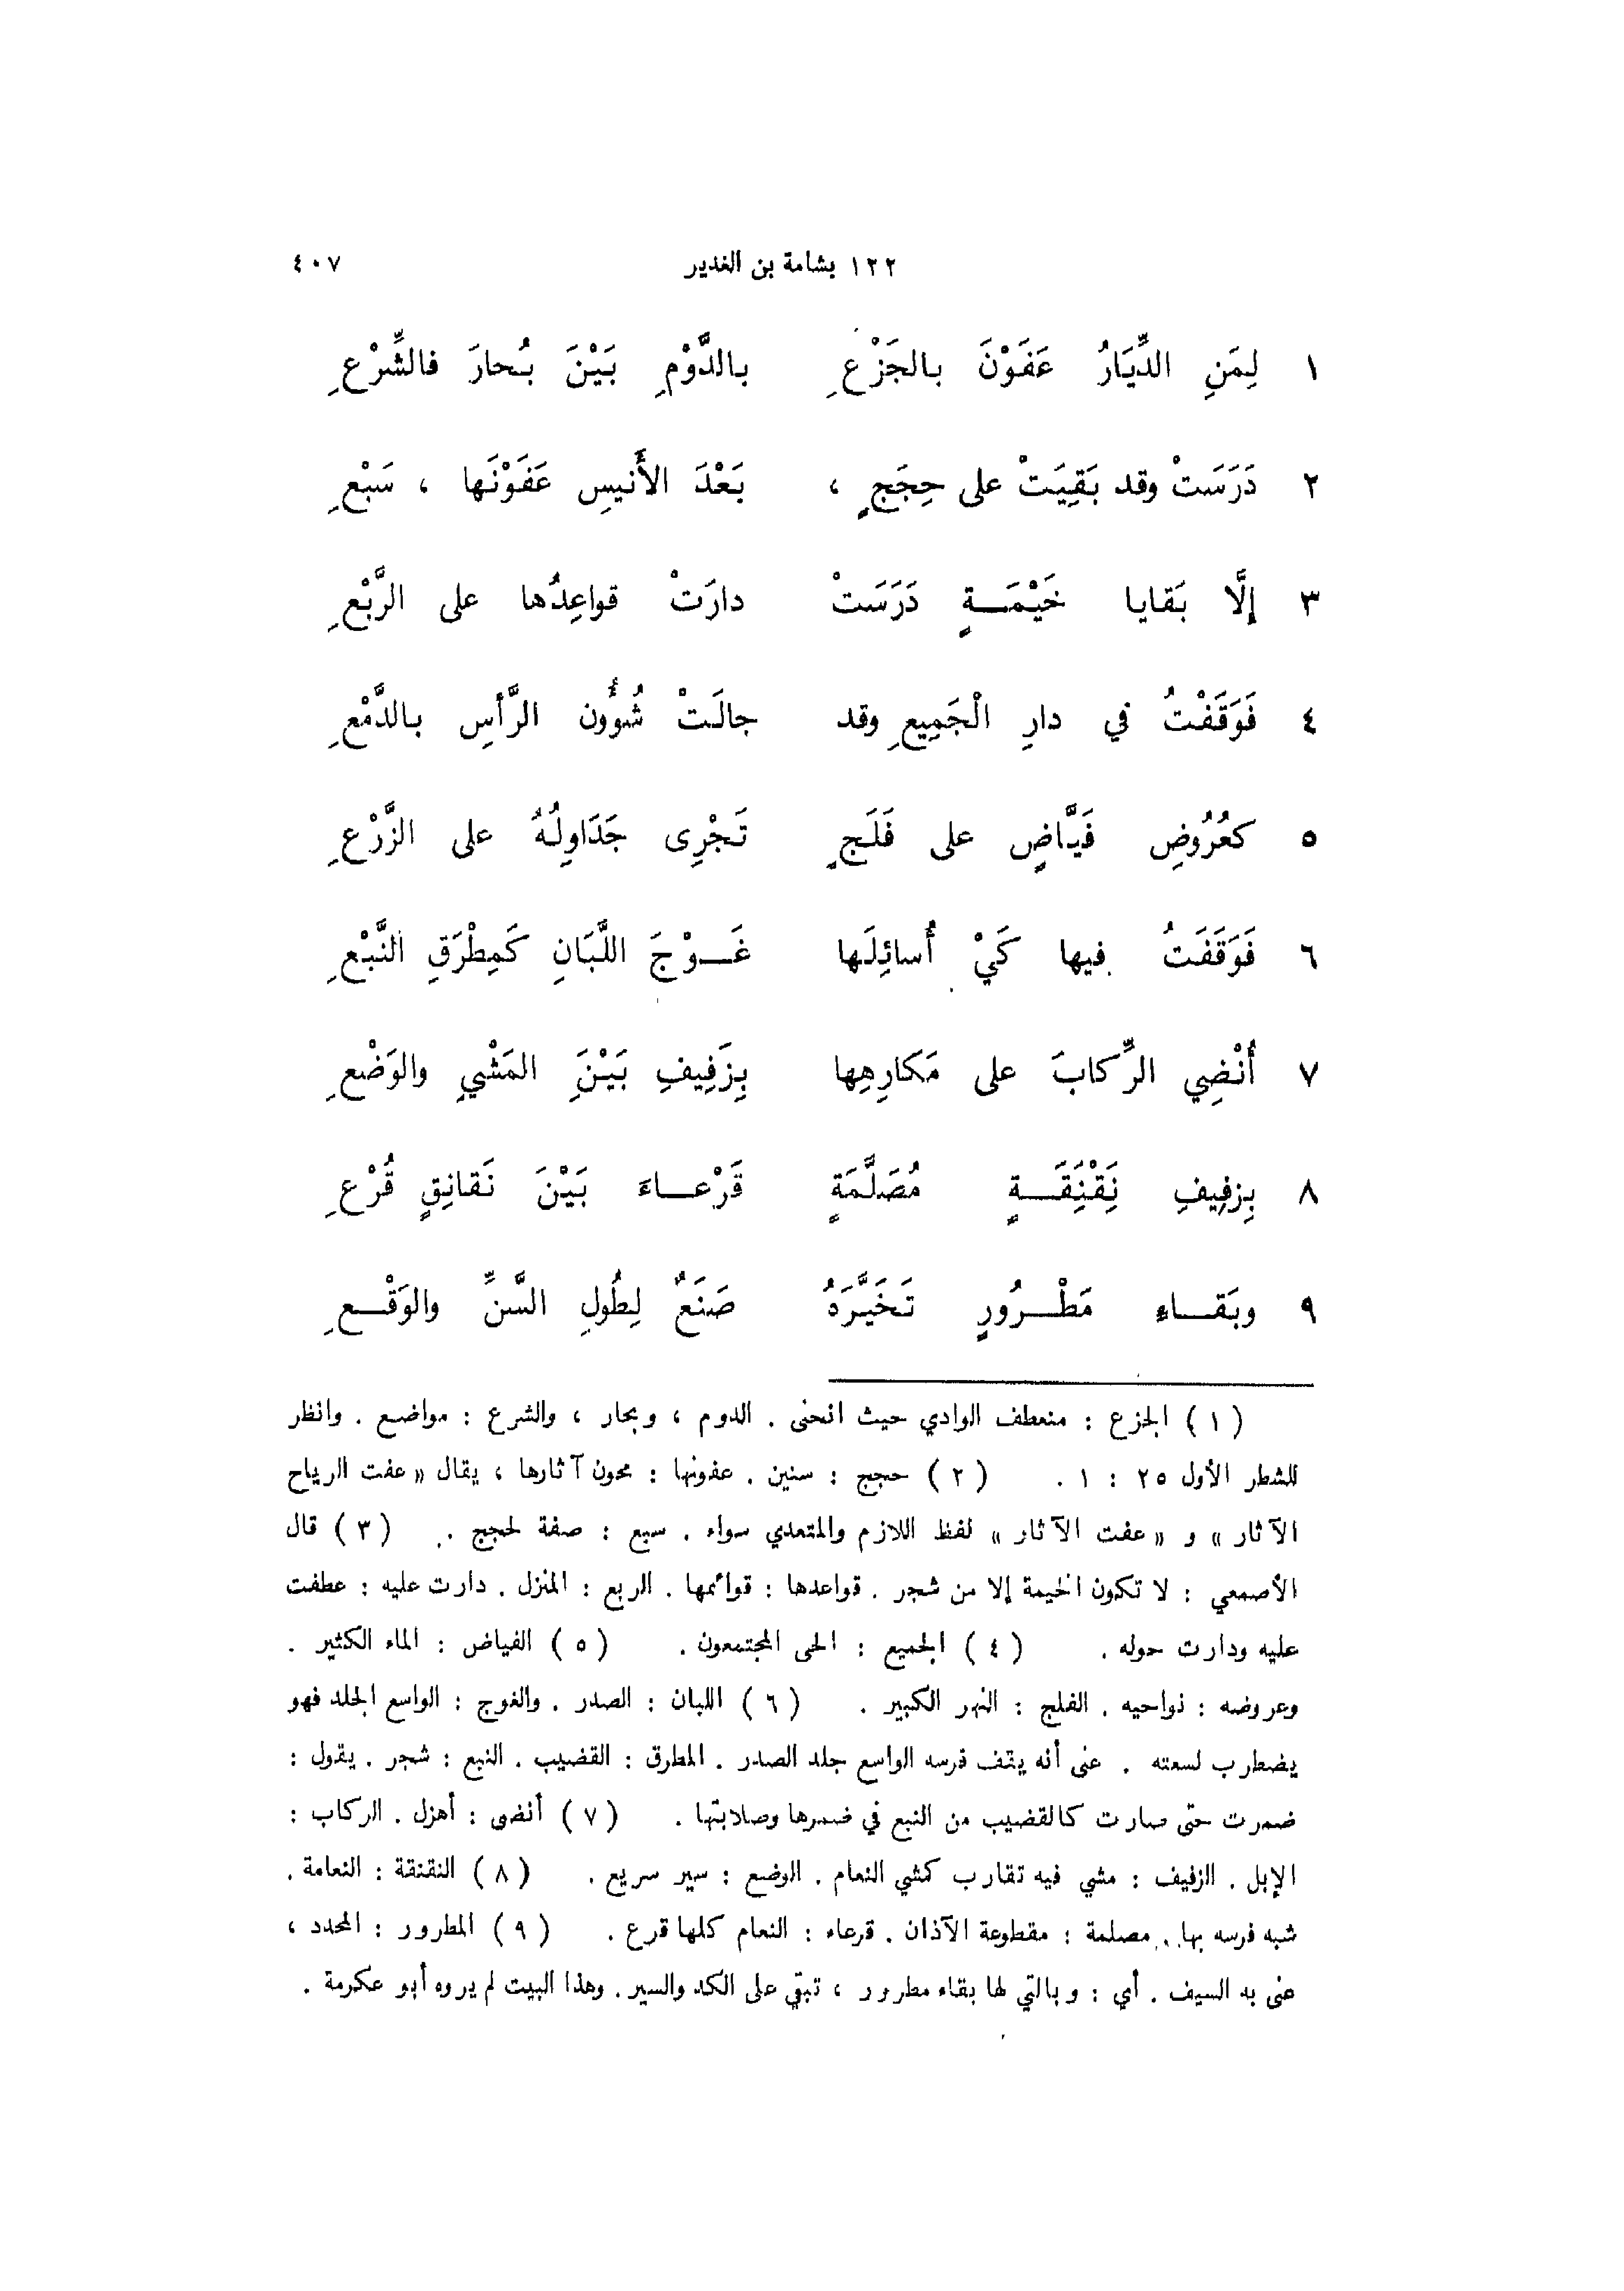 ١٢٢ بشامة بن الغدير ٤٠٧
١ لِمَنِ الدِّيَارُ عَفَوْنَ بالجَزْعِ بالدَّوْمِ بَيْنَ بُحارَ فالشِّرْعِ
٢ دَرَسَتْ وقد بَقِيَتْ على حِجَجٍ ، بَعْدَ الأَنيسِ عَفَوْنَها ، سَبْعِ
٣ إلَّا بَقايا خَيْمَةٍ دَرَسَتْ دارَتْ قواعِدُها على الرَّبْعِ
٤ فَوَقَفْتُ في دارِ الْجَمِيعِ وقد جالَتْ شُؤُون الرَّأسِ بالدَّمْعِ
٥ كعُرُوضِ فَيَّاضٍ على فَلَجٍ تَجْرِى جَدَاوِلُهُ على الزَّرْعِ
٦ فَوَقَفَتُ فيها كَيْ أُسائِلَها غَوْجَ اللَّبَانِ كَمِطْرَقِ النَّبْعِ
٧ أُنْضِي الرِّكابَ على مَكارِهِها بِزَفِيفِ بَيْنَ المَشْيِ والوَضْعِ
٨ بِزفِيفِ نَقْنِقَةٍ مُصَلَّمَةٍ قَرْعاءَ بَيْنَ نَقانِقٍ قُرْعِ
٩ وبَقاءِ مَطْرُورٍ تَخَيَّرَهُ صَنَعٌ لِطُولِ السَّنِّ والوَقْعِ
( ١ ) الجزع : منعطف الوادي حيث انحنى . الدوم ، وبحار ، والشرع : مواضع . وانظر
للشطر الأول ٢٥ : ١ . ( ٢ ) حجج : سنين . عفونها : محون آثارها ، يقال « عفت الرياح
الآثار » و « عفت الآثار » لفظ اللازم والمتعدي سواء . سبع : صفة لحجج . ( ٣ ) قال
الأصمعي : لا تكون الخيمة إلا من شجر . قواعدها : قوائمها . الربع : المنزل . دارت عليه : عطفت
عليه ودارت حوله . ( ٤ ) الجميع : الحى المجتمعون . ( ٥ ) الفياض : الماء الكثير .
وعروضه : نواحيه . الفلج : النهر الكبير . ( ٦ ) اللبان : الصدر . والغوج : الواسع الجلد فهو
يضطرب لسعته . عنى أنه يقف فرسه الواسع جلد الصدر . المطرق : القضيب . النبع : شجر . يقول :
ضمرت حتى صارت كالقضيب من النبع في ضمرها وصلابتها . ( ٧ ) أنضى : أهزل . الركاب :
الإبل . الزفيف : مشي فيه تقارب كمشي النعام . الوضع : سير سريع . ( ٨ ) النقنقة : النعامة .
شبه فرسه بها . مصلمة : مقطوعة الآذان . قرعاء : النعام كلها قرع . ( ٩ ) المطرور : المحدد ،
عنى به السيف . أي : وبالتي لها بقاء مطرور ، تبقى على الكد والسير . وهذا البيت لم يروه أبو عكرمة .